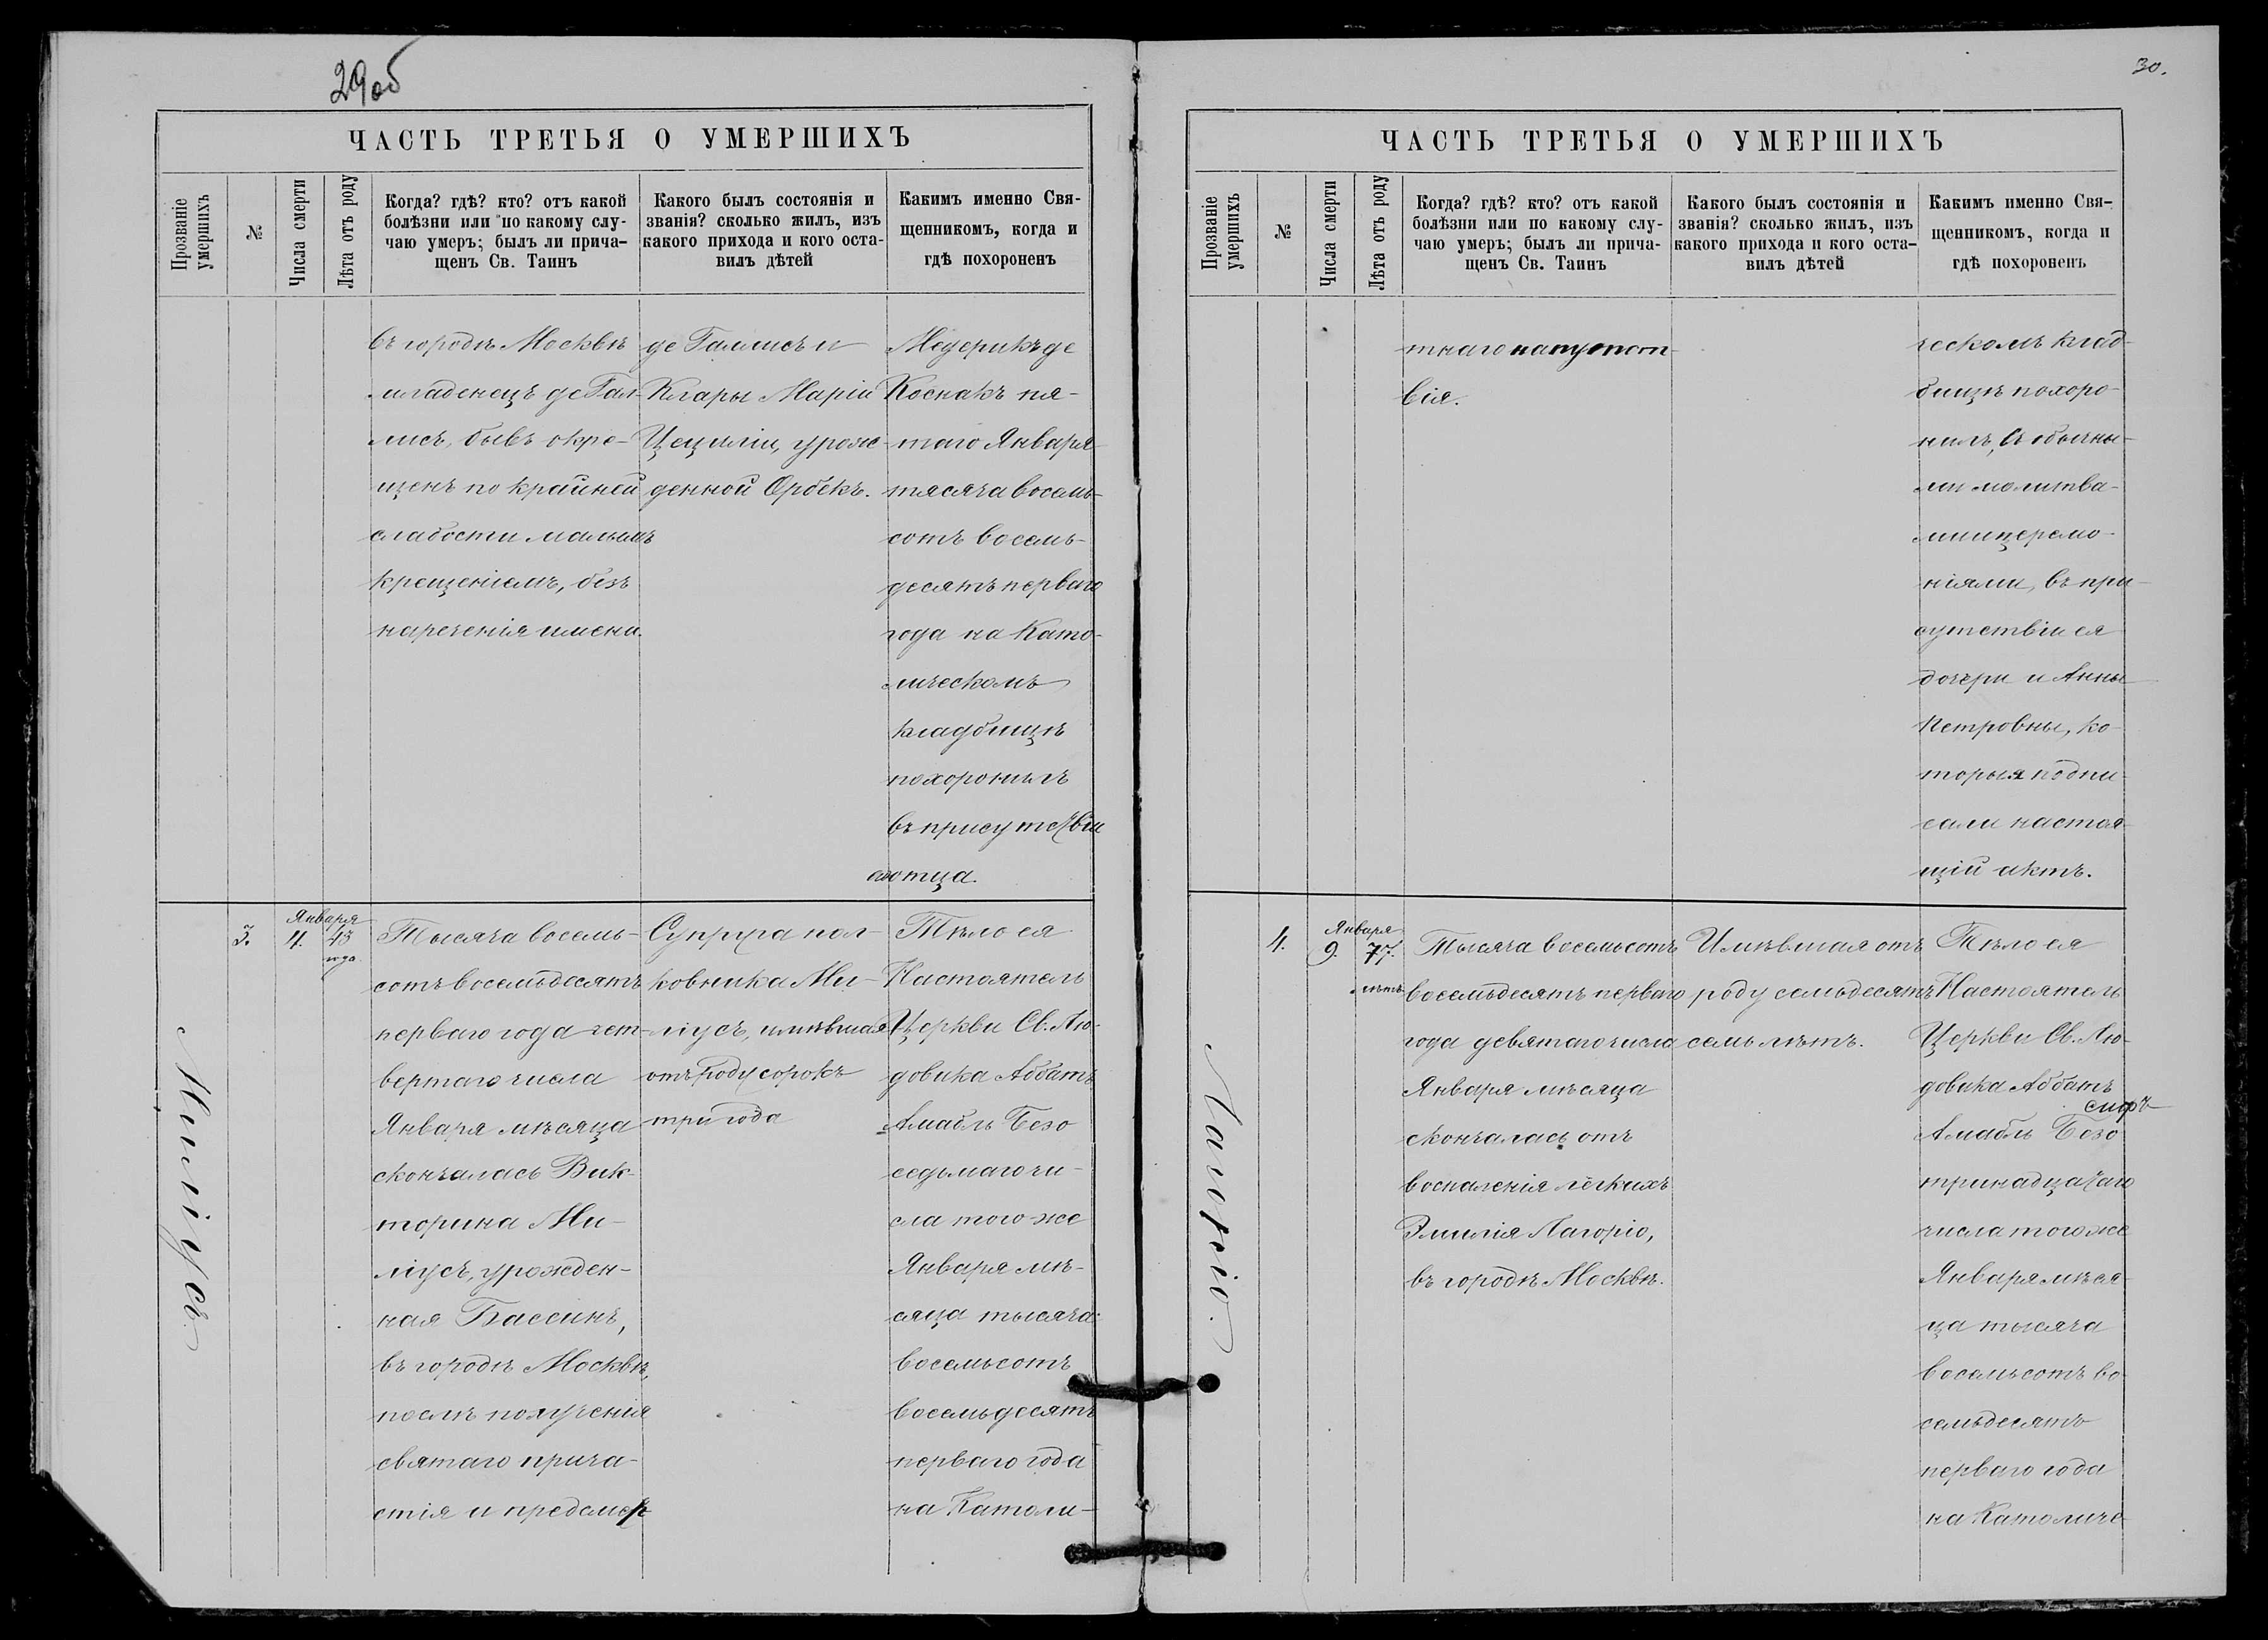 29об
ЧАСТЬ ТРЕТЬЯ О УМЕРШИХЪ
Прозваніе умершихъ
№
Числа смерти
Лѣта отъ роду
Когда? гдѣ? кто? отъ какой
болѣзни или по какому слу-
чаю умеръ; былъ ли прича-
щенъ Св. Таинъ
Какого былъ состоянія и
званія? сколько жилъ, изъ
какого прихода и кого оста-
вилъ дѣтей
Какимъ именно Свя-
щенникомъ, когда и
гдѣ похороненъ
въ городѣ Москвѣ
младенецъ де Гал-
лисъ, бывъ окре-
щенъ по крайней
слабости малымъ
крещеніемъ, безъ
нареченія имени.
де Галлисъ и
Клары Маріи
Цециліи, урож-
денной Орбекъ.
Медерикъ де
Коснакъ пя-
таго Января
тысяча восемь-
сотъ восемь-
десятъ перваго
года на Като-
лическомъ
кладбищѣ
похоронилъ
въ присутствіи
его отца.
Миліусъ
3.
Января
4.
43
года.
Тысяча восемь-
сотъ восемьдесятъ
перваго года чет-
вертаго числа
Января мѣсяца
скончалась Вик-
торина Ми-
ліусъ, урожден-
ная Бассинъ,
въ городѣ Москвѣ,
послѣ полученія
святаго прича-
стія и предсмер-
Супруга пол-
ковника Ми-
ліусъ, имѣвшая
отъ роду сорокъ
три года
Тѣло ея
Настоятель
Церкви Св. Лю-
довика Аббатъ
Амабль Безо
седьмаго чи-
сла того же
Января мѣ-
сяца тысяча
восемьсотъ
восемьдесятъ
перваго года
на Католи-
30.
ЧАСТЬ ТРЕТЬЯ О УМЕРШИХЪ
Прозваніе умершихъ
№
Числа смерти
Лѣта отъ роду
Когда? гдѣ? кто? отъ какой
болѣзни или по какому слу-
чаю умеръ; былъ ли прича-
щенъ Св. Таинъ
Какого былъ состоянія и
званія? сколько жилъ, изъ
какого прихода и кого оста-
вилъ дѣтей
Какимъ именно Свя-
щенникомъ, когда и
гдѣ похороненъ
тнаго напутст-
вія.
ческомъ клад-
бищѣ похоро-
нилъ, съ обычны-
ми молитва-
ми и церемо-
ніями, въ при-
сутствіи ея
дочери и Анны
Петровны, ко-
торыя подпи-
сали настоя-
щій актъ.
Лагоріо.
4.
Января
9.
77.
лѣтъ
Тысяча восемьсотъ
восемьдесятъ перваго
года девятаго числа
Января мѣсяца
скончалась отъ
воспаленія лёгкихъ
Эмилія Лагоріо,
въ городѣ Москвѣ.
Имѣвшая отъ
роду семьдесятъ
семь лѣтъ.
Тѣло ея
Настоятель
Церкви Св. Лю-
довика Аббатъ
Амабль Безо
тринадцатаго
числа того же
Января мѣся-
ца тысяча
восемьсотъ во-
семьдесятъ
перваго года
на Католиче-